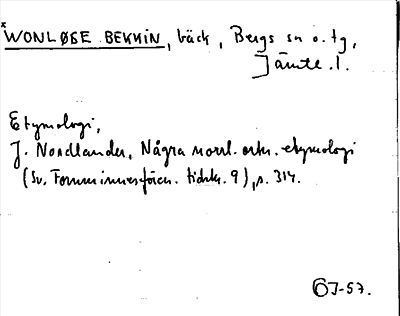 *WONLØSE BEKKIN, bäck, Bergs sn o. tg,
Jämtl. l.
Etymologi,
J. Nordlander, Några norrl. ortn. etymologi
(Sv. Fornminnesfören. tidskr. 9), s. 314.
ÖJ-57.